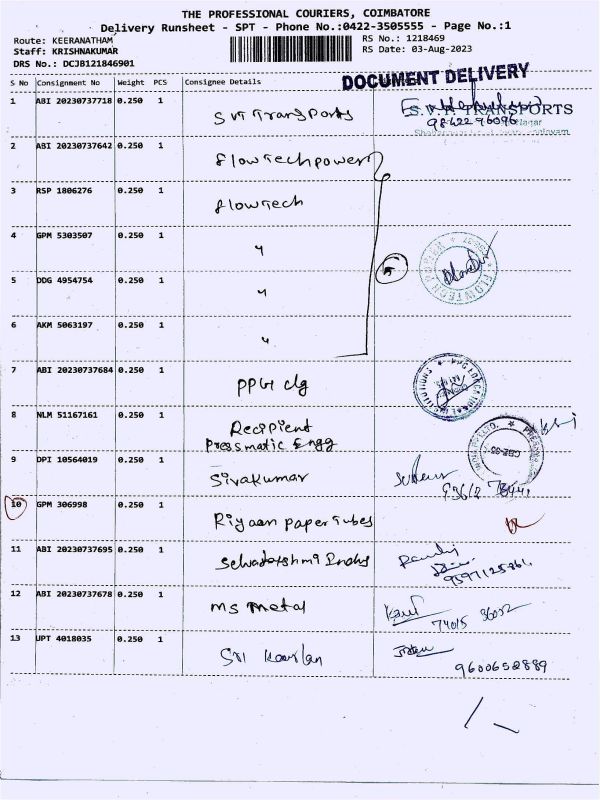 THE PROFESSIONAL COURIERS, COIMBATORE
Delivery Runsheet - SPT - Phone No.:0422-3505555 - Page No.:1
Route: KEERANATHAM
RS No.: 1218469
Staff: KRISHNAKUMAR
RS Date: 03-Aug-2023
DRS No.: DCJB121846901
DOCUMENT DELIVERY
S No Consignment No Weight PCS Consignee Details
1 ABI 20230737718 0.250 1 SVT Transports
S.V.T. TRANSPORTS
9842296096
2 ABI 20230737642 0.250 1 Flowtechpower
3 RSP 1806276 0.250 1 Flowtech
4 GPM 5303507 0.250 1 "
5
FLOWTECH POWER
5 DDG 4954754 0.250 1 "
6 AKM 5063197 0.250 1 "
7 ABI 20230737684 0.250 1 PPG clg
8 NLM 51167161 0.250 1 Recipient
Pressmatic Engg
9 DPI 10564019 0.250 1 Sivakumar
10 GPM 306998 0.250 1 Riyaan paper tubes
11 ABI 20230737695 0.250 1
12 ABI 20230737678 0.250 1 MS Metal
13 UPT 4018035 0.250 1 Sri
9600652889